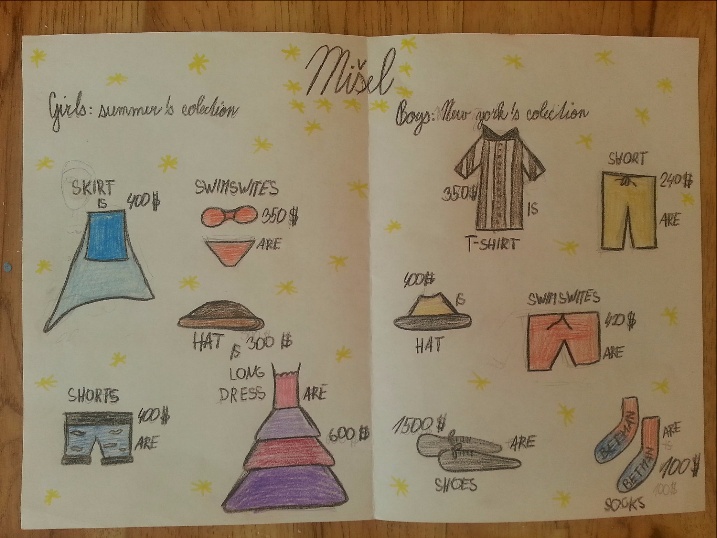 Mišel
Girls: summer's colection
SKIRT
IS
400$
SWIMSWITES
350$
ARE
HAT
IS
300$
SHORTS
400$
ARE
LONG
DRESS
ARE
600$
Boys: New york's colection
350$
IS
T-SHIRT
SHORT
240$
ARE
400$
IS
HAT
SWIMSWITES
420$
ARE
1500$
ARE
SHOES
BETMAN
BETMAN
ARE
100$
100$
SOCKS